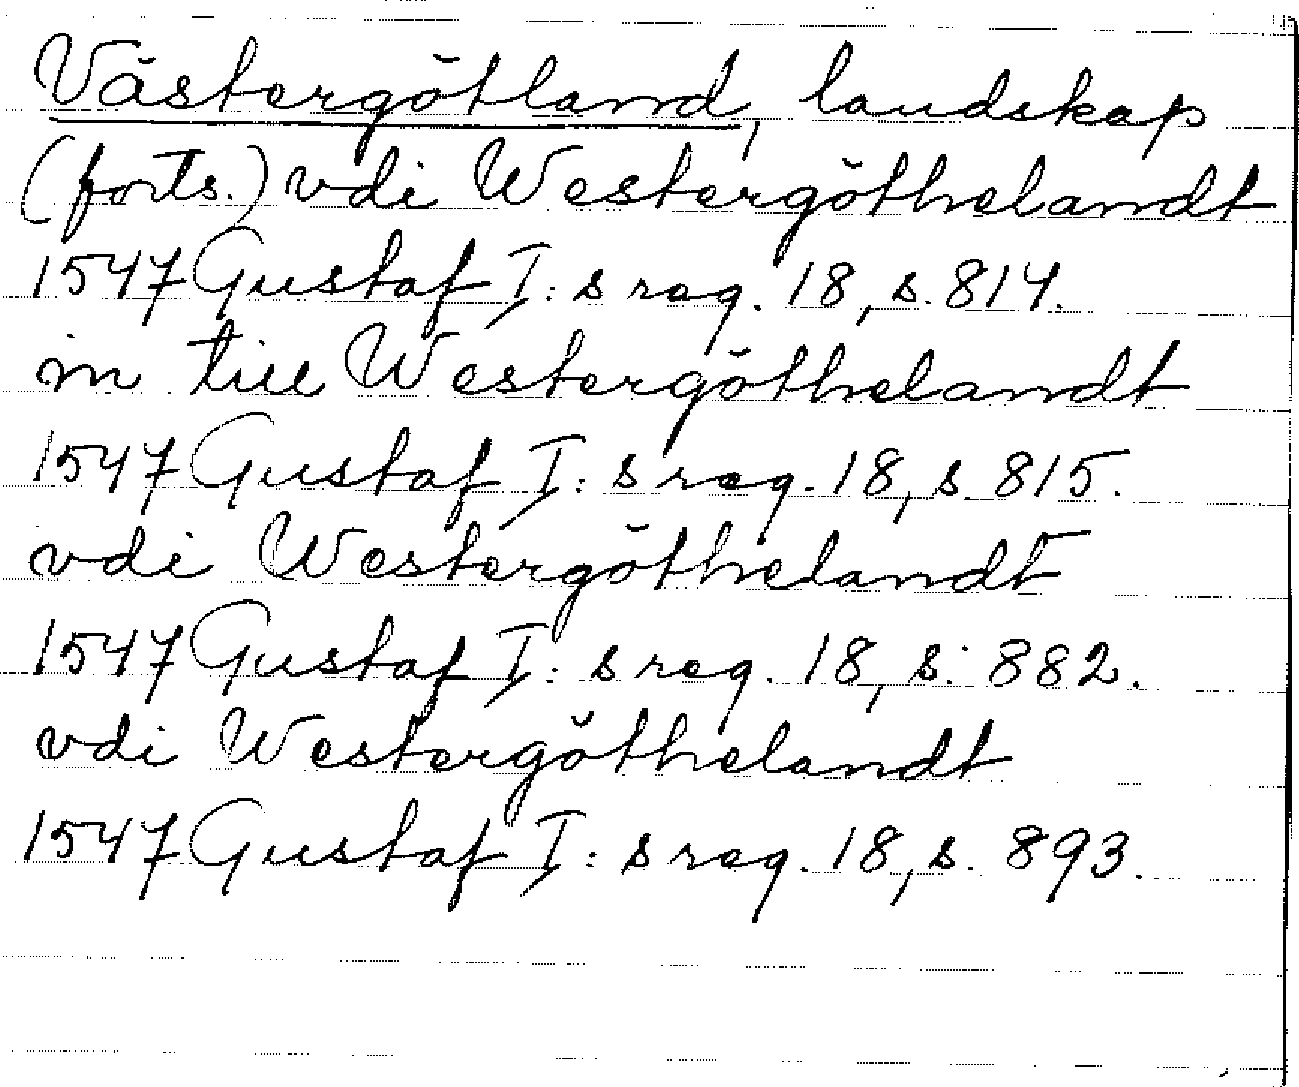 Västergötland, landskap
(forts.) vdi Westergöthelandt
1547 Gustaf I: s reg. 18, s. 814.
in till Westergöthelandt
1547 Gustaf I: s reg. 18, s. 815.
vdi Westergöthelandt
1547 Gustaf I: s reg. 18, s. 882.
vdi Westergöthelandt
1547 Gustaf I: s reg. 18, s. 893.